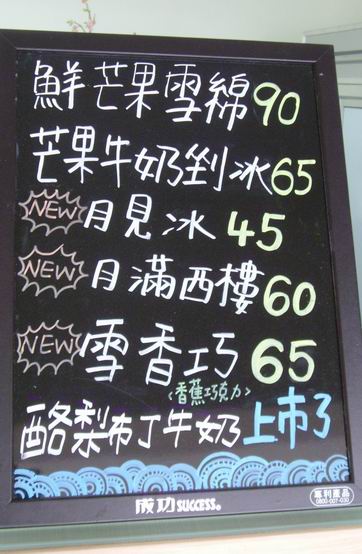 鮮芒果雪綿90
芒果牛奶剉冰65
NEW 月見冰 45
NEW 月滿西樓60
NEW 雪香巧 65
<香蕉巧克力>
酪梨布丁牛奶上市了
成功 SUCCESS®
專利產品
0800-007-030